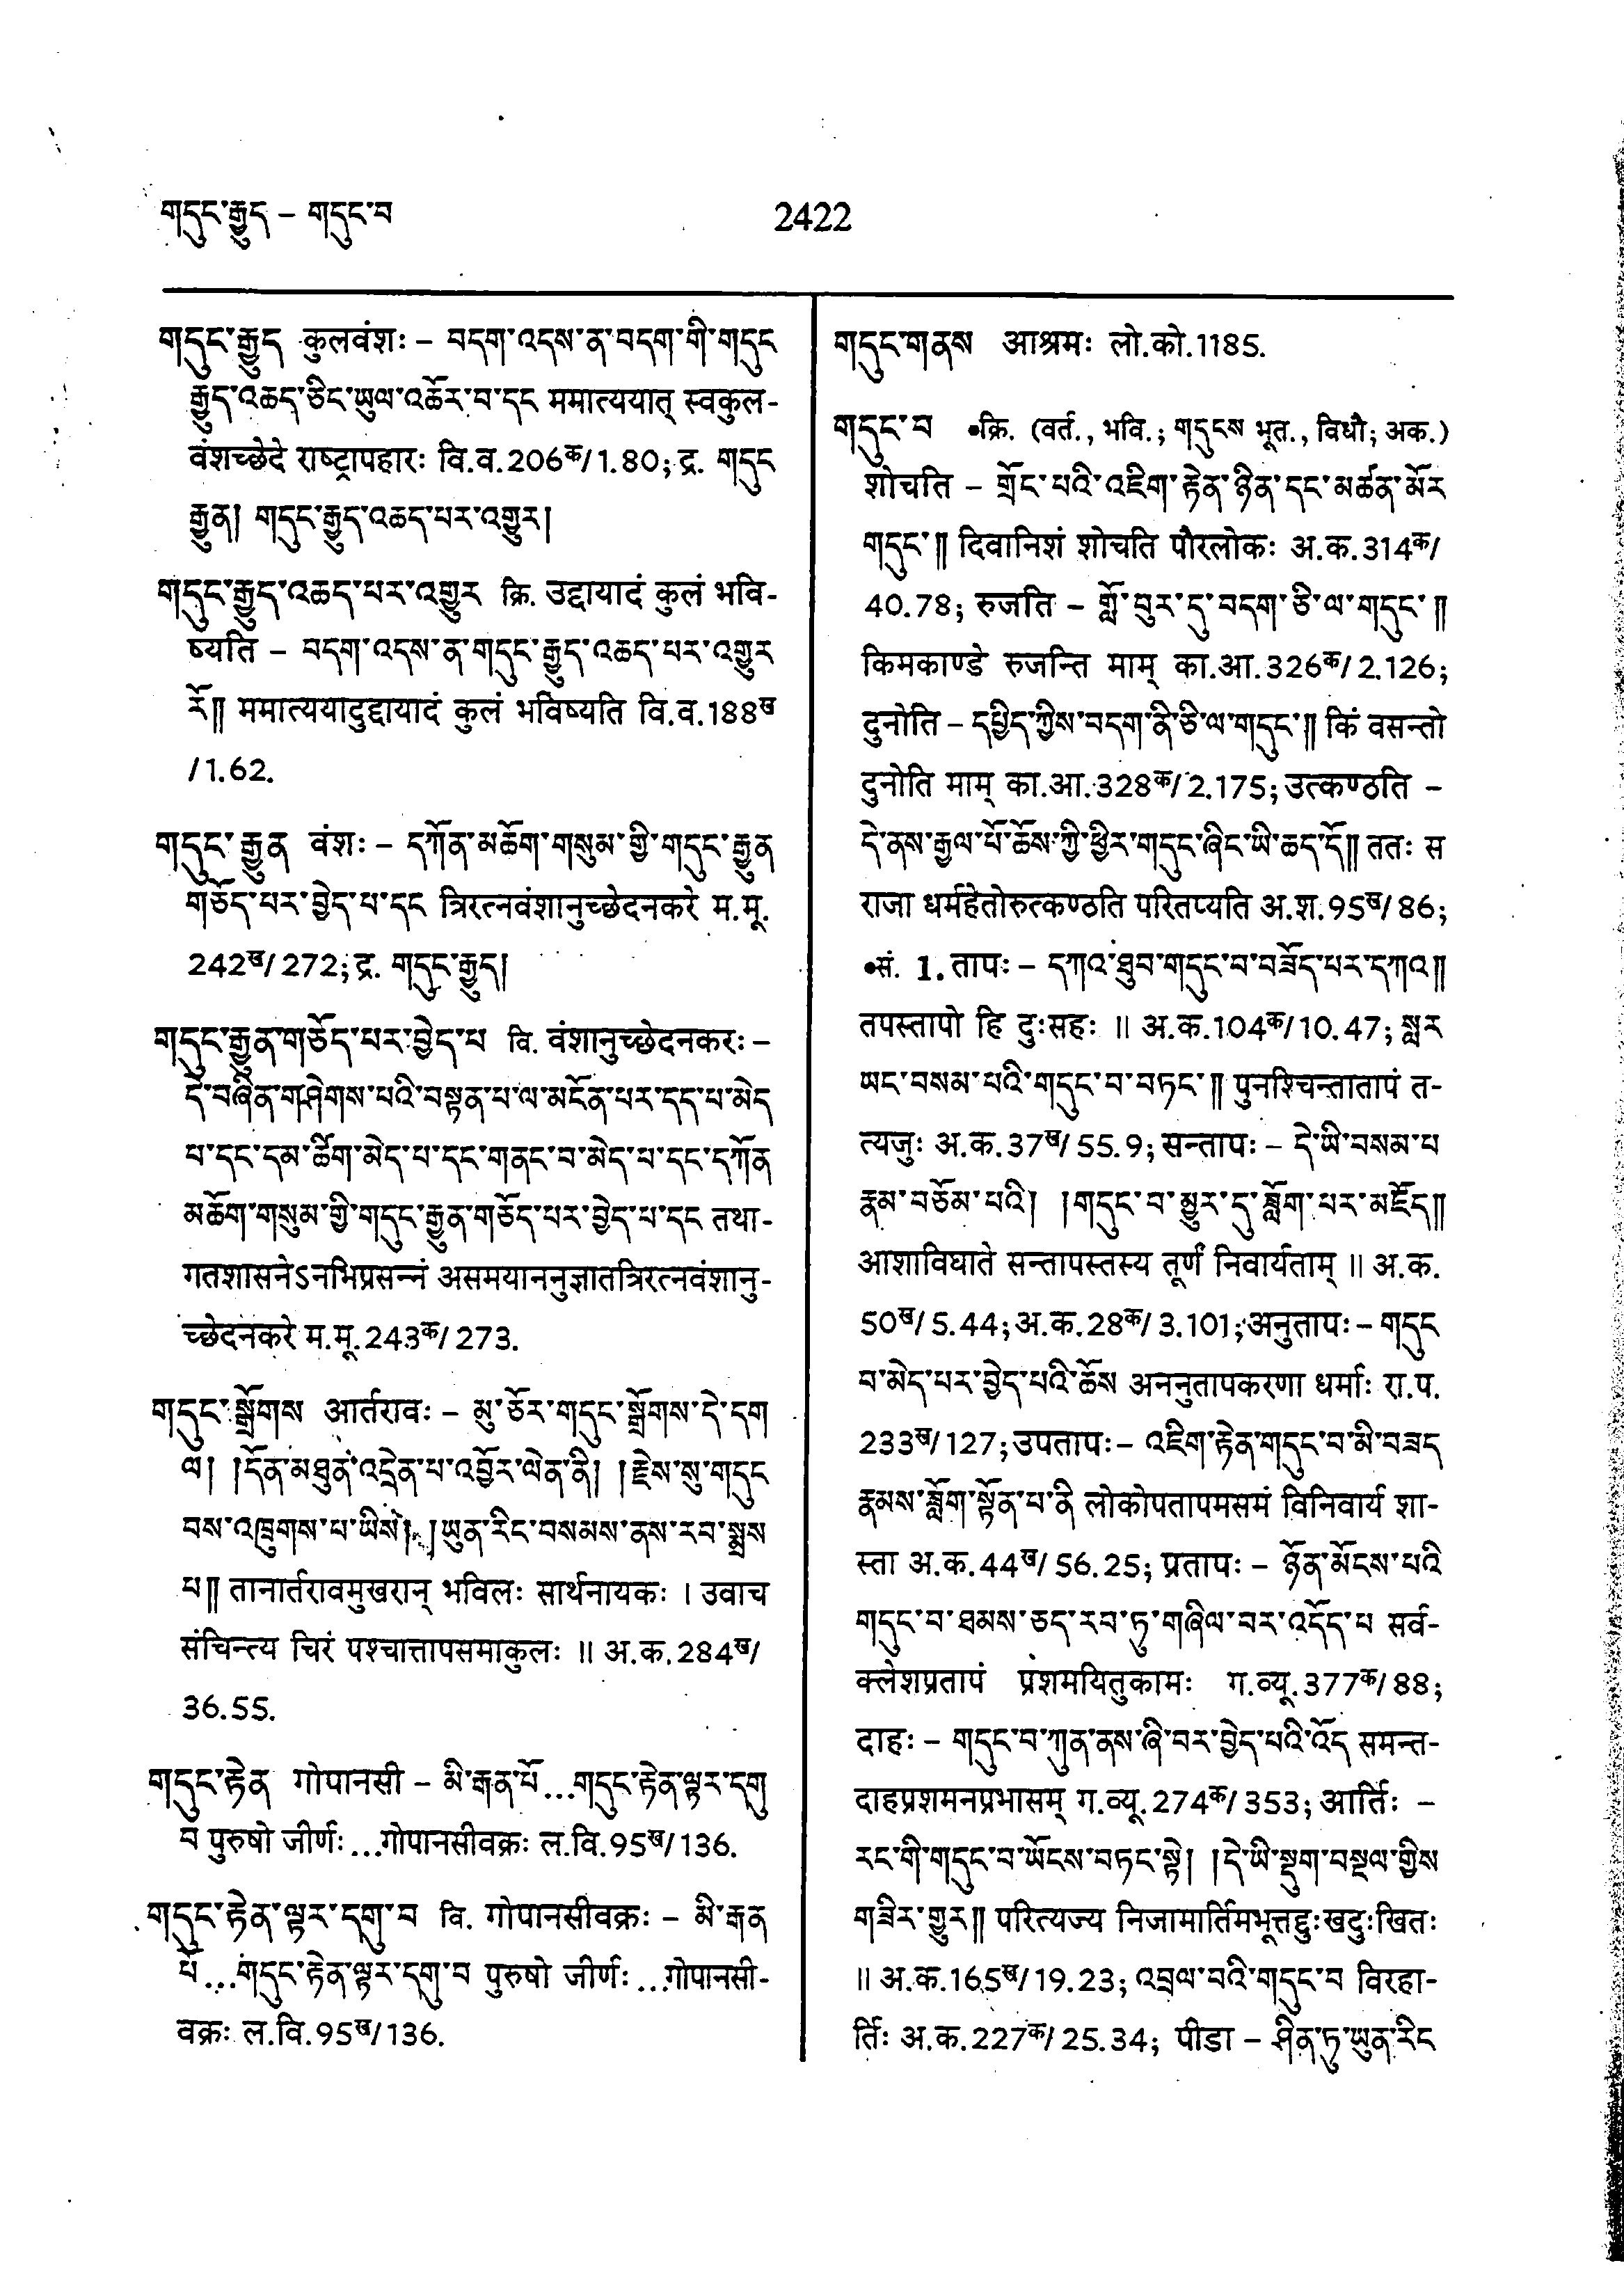 གདུང་རྒྱུད – གདུང་བ
2422
གདུང་རྒྱུད कुलवंशः – བདག་འདས་ན་བདག་གི་གདུང
རྒྱུད་འཆད་ཅིང་ཡུལ་འཆོར་བ་དང ममात्ययात् स्वकुल-
वंशच्छेदे राष्ट्रापहारः वि.व.206क/1.80; द्र. གདུང
རྒྱུན། གདུང་རྒྱུད་འཆད་པར་འགྱུར།
གདུང་རྒྱུད་འཆད་པར་འགྱུར क्रि. उद्दायादं कुलं भवि-
ष्यति – བདག་འདས་ན་གདུང་རྒྱུད་འཆད་པར་འགྱུར
རོ༎ ममात्ययादुद्दायादं कुलं भविष्यति वि.व.188ख
/1.62.
གདུང་རྒྱུན वंशः – དཀོན་མཆོག་གསུམ་གྱི་གདུང་རྒྱུན
གཅོད་པར་བྱེད་པ་དང त्रिरत्नवंशानुच्छेदनकरे म.मू.
242ख/272; द्र. གདུང་རྒྱུད།
གདུང་རྒྱུན་གཅོད་པར་བྱེད་པ वि. वंशानुच्छेदनकरः –
དེ་བཞིན་གཤེགས་པའི་བསྟན་པ་ལ་མངོན་པར་དད་པ་མེད
པ་དང་དམ་ཚིག་མེད་པ་དང་གནང་བ་མེད་པ་དང་དཀོན
མཆོག་གསུམ་གྱི་གདུང་རྒྱུན་གཅོད་པར་བྱེད་པ་དང तथा-
गतशासनेऽनभिप्रसन्नं असमयाननुज्ञातत्रिरत्नवंशानु-
च्छेदनकरे म.मू.243क/273.
གདུང་སྒྲོགས आर्तरावः – མུ་ཅོར་གདུང་སྒྲོགས་དེ་དག
ལ། །དོན་མཐུན་འདྲེན་པ་འབྱོར་ལེན་ནི། །རྗེས་སུ་གདུང
བས་འཁྲུགས་པ་ཡིས། །ཡུན་རིང་བསམས་ནས་རབ་སྨྲས
པ༎ तानार्तरावमुखरान् भविलः सार्थनायकः । उवाच
संचिन्त्य चिरं पश्चात्तापसमाकुलः ॥ अ.क.284ख/
36.55.
གདུང་རྟེན गोपानसी – མི་རྒན་པོ...གདུང་རྟེན་ལྟར་དགུ
བ पुरुषो जीर्णः...गोपानसीवक्रः ल.वि.95ख/136.
གདུང་རྟེན་ལྟར་དགུ་བ वि. गोपानसीवक्रः – མི་རྒན
པོ...གདུང་རྟེན་ལྟར་དགུ་བ पुरुषो जीर्णः...गोपानसी-
वक्रः ल.वि.95ख/136.
གདུང་གནས आश्रमः लो.को.1185.
གདུང་བ •क्रि. (वर्त., भवि.; གདུངས भूत., विधौ; अक.)
शोचति – གྲོང་པའི་འཇིག་རྟེན་ཉིན་དང་མཚན་མོར
གདུང་༎ दिवानिशं शोचति पौरलोकः अ.क.314क/
40.78; रुजति – གློ་བུར་དུ་བདག་ཅི་ལ་གདུང་༎
किमकाण्डे रुजन्ति माम् का.आ.326क/2.126;
दुनोति – དཔྱིད་ཀྱིས་བདག་ནི་ཅི་ལ་གདུང་༎ किं वसन्तो
दुनोति माम् का.आ.328क/2.175; उत्कण्ठति –
དེ་ནས་རྒྱལ་པོ་ཆོས་ཀྱི་ཕྱིར་གདུང་ཞིང་ཡི་ཆད་དོ༎ ततः स
राजा धर्महेतोरुत्कण्ठति परितप्यति अ.श.95ख/86;
•सं. 1. तापः – དཀའ་ཐུབ་གདུང་བ་བཟོད་པར་དཀའ༎
तपस्तापो हि दुःसहः ॥ अ.क.104क/10.47; སླར
ཡང་བསམ་པའི་གདུང་བ་བཏང་༎ पुनश्चिन्तातापं त-
त्यजुः अ.क.37ख/55.9; सन्तापः – དེ་ཡི་བསམ་པ
རྣམ་བཅོམ་པའི། །གདུང་བ་མྱུར་དུ་ཟློག་པར་མཛོད༎
आशाविघाते सन्तापस्तस्य तूर्णं निवार्यताम् ॥ अ.क.
50ख/5.44; अ.क.28क/3.101; अनुतापः – གདུང
བ་མེད་པར་བྱེད་པའི་ཆོས अननुतापकरणा धर्माः रा.प.
233ख/127; उपतापः – འཇིག་རྟེན་གདུང་བ་མི་བཟད
རྣམས་ཟློག་སྟོན་པ་ནི लोकोपतापमसमं विनिवार्य शा-
स्ता अ.क.44ख/56.25; प्रतापः – ཉོན་མོངས་པའི
གདུང་བ་ཐམས་ཅད་རབ་ཏུ་གཞིལ་བར་འདོད་པ सर्व-
क्लेशप्रतापं प्रशमयितुकामः ग.व्यू.377क/88;
दाहः – གདུང་བ་ཀུན་ནས་ཞི་བར་བྱེད་པའི་འོད समन्त-
दाहप्रशमनप्रभासम् ग.व्यू.274क/353; आर्तिः –
རང་གི་གདུང་བ་ཡོངས་བཏང་སྟེ། །དེ་ཡི་སྡུག་བསྔལ་གྱིས
གཟིར་གྱུར༎ परित्यज्य निजामार्तिमभूत्तद्दुःखदुःखितः
॥ अ.क.165ख/19.23; འབྲལ་བའི་གདུང་བ विरहा-
र्तिः अ.क.227क/25.34; पीडा – ཤིན་ཏུ་ཡུན་རིང